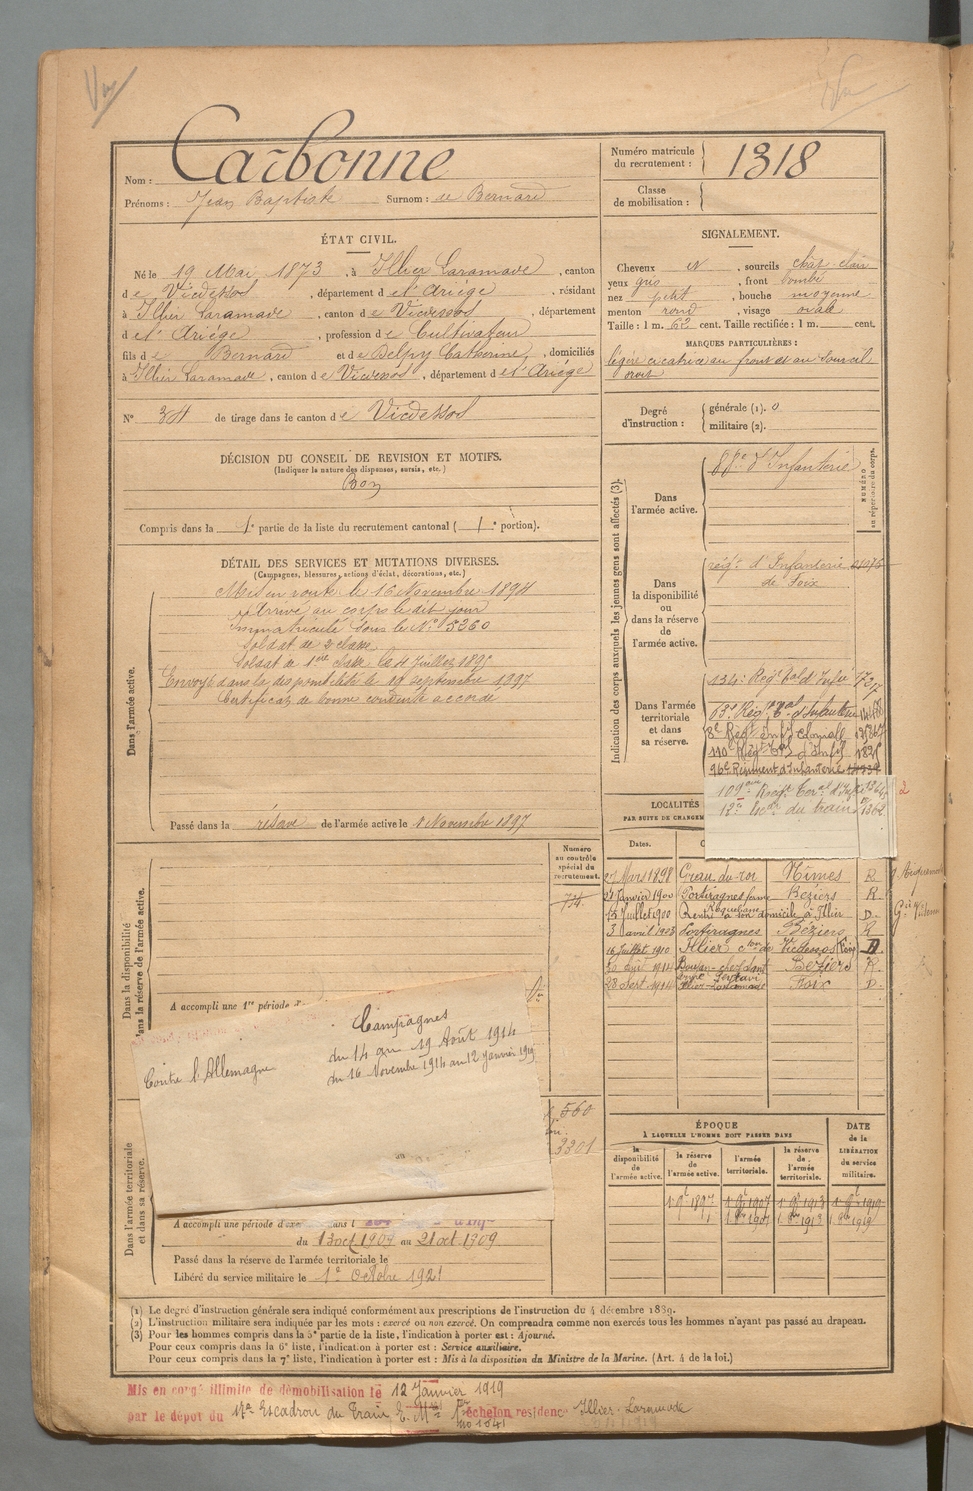 Nom : Carbonne
Prénoms : Jean Baptiste Surnom : de Bernard
Numéro matricule du recrutement : 1318
Classe de mobilisation :
ÉTAT CIVIL.
Né le 19 Mai 1873, à Illier Laramade, canton
de Vicdessos, département de l'Ariége, résidant
à Illier Laramade, canton de Vicdessos, département
d e l'Ariége, profession de Cultivateur
fils de Bernard et de Delpy Catherine, domiciliés
à Illier Laramade, canton de Vicdessos, département de l'Ariége
N° 34 de tirage dans le canton de Vicdessos
SIGNALEMENT.
Cheveux N, sourcils chât. clair
yeux gris, front bombé
nez petit, bouche moyenne
menton rond, visage ovale
Taille : 1 m. 62 cent. Taille rectifiée : 1 m. cent.
MARQUES PARTICULIÈRES :
légère cicatrice au front et au sourcil
droit
Degré d'instruction : générale (1). 0
militaire (2).
DÉCISION DU CONSEIL DE REVISION ET MOTIFS.
(Indiquer la nature des dispenses, sursis, etc.)
Bon
Compris dans la 1e partie de la liste du recrutement cantonal (1e portion).
DÉTAIL DES SERVICES ET MUTATIONS DIVERSES.
(Campagnes, blessures, actions d'éclat, décorations, etc.)
Dans l'armée active.
Mis en route le 16 Novembre 1894
Arrivé au corps le dit jour
Immatriculé sous le N° 5360
Soldat de 2e classe
Soldat de 1ère classe le 4 Juillet 1895
Envoyé dans la disponibilité le 19 septembre 1897
Certificat de bonne conduite accordé
Passé dans la réserve de l'armée active le 1 Novembre 1897
Indication des corps auxquels les jeunes gens sont affectés (3).
NUMÉRO au répertoire du corps.
Dans l'armée active.
88e d'Infanterie
Dans la disponibilité ou dans la réserve de l'armée active.
régt d'Infanterie
de Foix
Dans l'armée territoriale et dans sa réserve.
134e Régt tal d'Infie
8e Régt Infie Coloniale
110e Régt
96e Régiment d'Infanterie
109ème Regt Teral d'Infie
18e Escon du train
2
LOCALITÉS
PAR SUITE DE CHANGEM
Dates.
27 Mars 1898 Grau du roi Nîmes R
21 Janvier 1900 Portiragnes Béziers R.
15 Juillet 1900 Rentré à son domicile à Illier D.
3 avril 1903 Portiragnes Béziers R
16 Juillet 1910 Illier cton de Vicdessos D
Béziers R.
28 Sept. 1914 Illier-Laramade Foix D.
Numéro au contrôle spécial du recrutement.
74
Dans la disponibilité et dans la réserve de l'armée active.
A accompli une 1re période d'
Campagnes
Contre l'Allemagne
du 14 au 19 Août 1914
du 16 Novembre 1914 au 12 Janvier 1919
560
3301
Dans l'armée territoriale et dans sa réserve.
A accompli une période d'exe dans l
du 13 oct 1909 au 21 oct 1909
Passé dans la réserve de l'armée territoriale le
Libéré du service militaire le 1er Octobre 1921
ÉPOQUE
À LAQUELLE L'HOMME DOIT PASSER DANS
DATE de la LIBÉRATION du service militaire.
la disponibilité de l'armée active.
la réserve de l'armée active.
l'armée territoriale.
la réserve de l'armée territoriale.
(1) Le degré d'instruction générale sera indiqué conformément aux prescriptions de l'instruction du 4 décembre 1889.
(2) L'instruction militaire sera indiquée par les mots : exercé ou non exercé. On comprendra comme non exercés tous les hommes n'ayant pas passé au drapeau.
(3) Pour les hommes compris dans la 5e partie de la liste, l'indication à porter est : Ajourné.
Pour ceux compris dans la 6e liste, l'indication à porter est : Service auxiliaire.
Pour ceux compris dans la 7e liste, l'indication à porter est : Mis à la disposition du Ministre de la Marine. (Art. 4 de la loi.)
Mis en congé illimité de démobilisation le 12 Janvier 1919
par le dépôt du 17e Escadron du Train échelon résidence Illier-Laramade